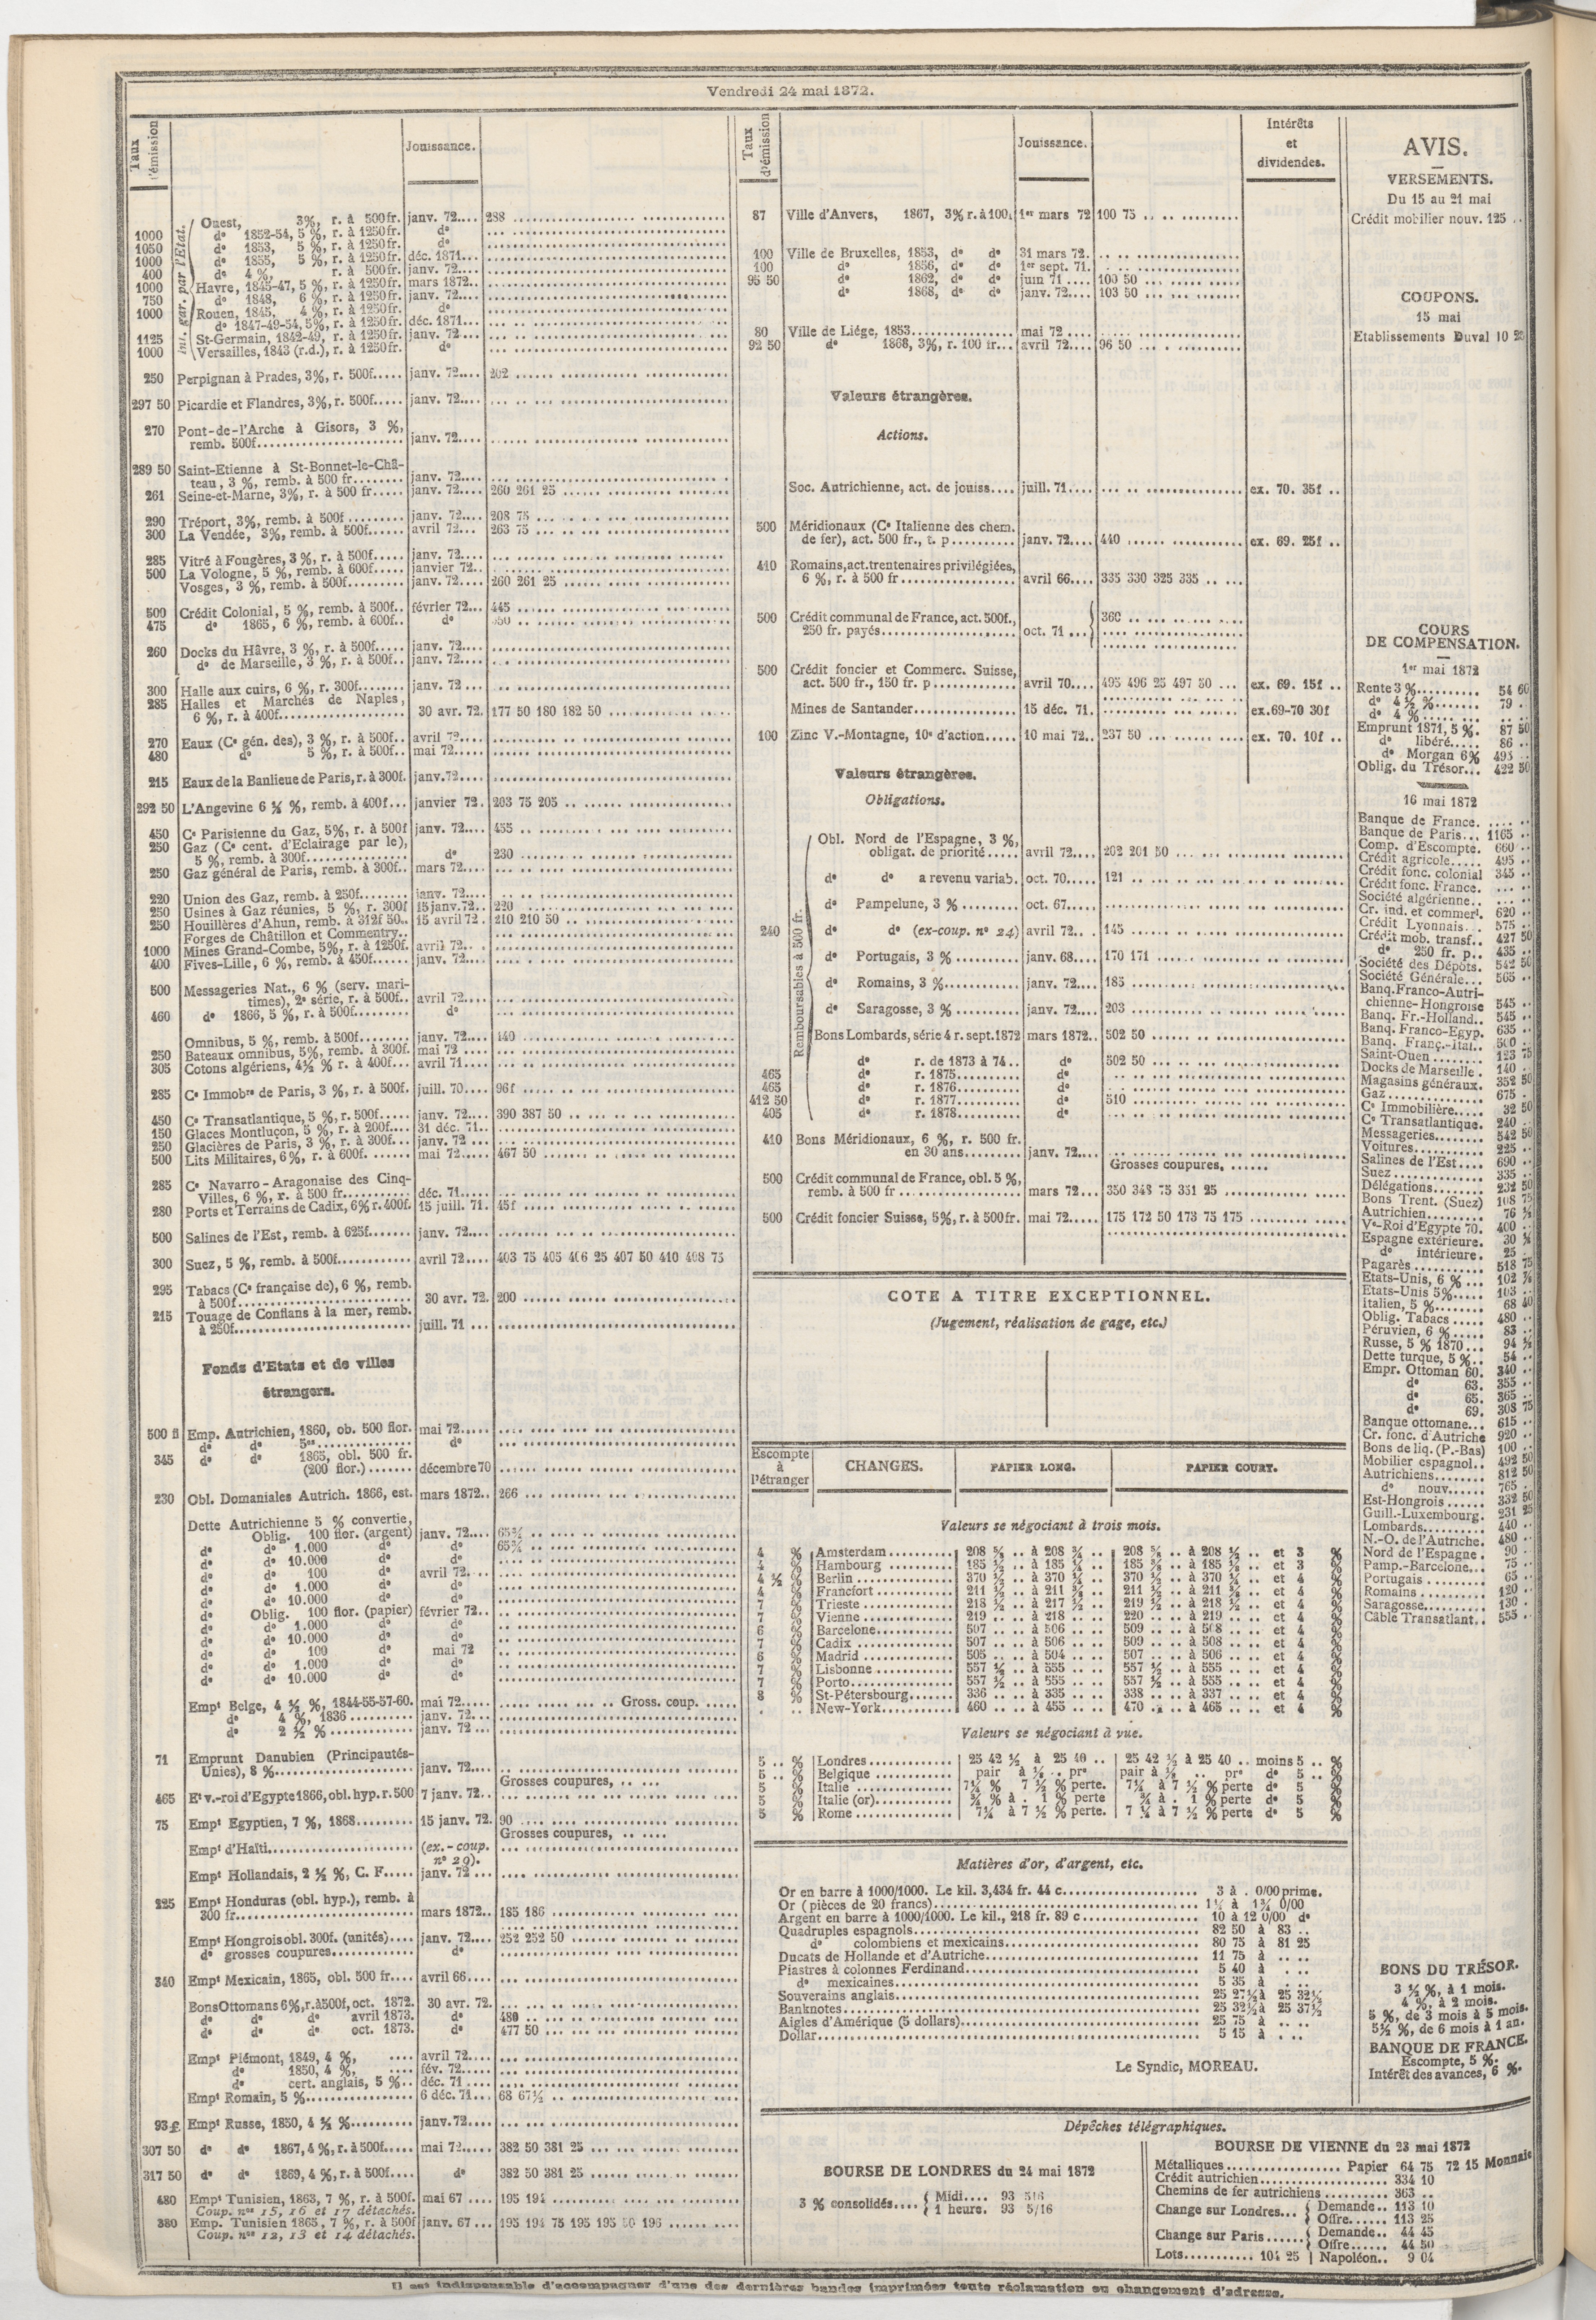 Vendredi 24 mai 1872.
Taux d'émission
Jouissance.
int. gar. par l'Etat.
Ouest, 3%, r. à 500fr. janv. 72.... 288
1000 do 1852-54, 5 %, r. à 1250fr. do
1050 do 1853, 5 %, r. à 1250fr. do
1000 do 1855, 5 %, r. à 1250fr. déc. 1871...
400 do 4 %, r. à 500fr. janv. 72....
1000 Havre, 1845-47, 5 %, r. à 1250fr. mars 1872..
750 do 1848, 6 %, r. à 1250fr. janv. 72....
1000 Rouen, 1845, 4 %, r. à 1250fr. do
do 1847-49-54, 5%, r. à 1250fr. déc. 1871...
1125 St-Germain, 1842-49, r. à 1250fr. janv. 72....
1000 Versailles, 1843 (r.d.), r. à 1250fr. do
250 Perpignan à Prades, 3%, r. 500f..... janv. 72.... 202
297 50 Picardie et Flandres, 3%, r. 500f..... janv. 72....
270 Pont-de-l'Arche à Gisors, 3 %,
remb. 500f.......... janv. 72....
289 50 Saint-Etienne à St-Bonnet-le-Châ-
teau, 3 %, remb. à 500 fr........ janv. 72....
261 Seine-et-Marne, 3%, r. à 500 fr..... janv. 72.... 260 261 25
290 Tréport, 3%, remb. à 500f......... janv. 72.... 208 75
300 La Vendée, 3%, remb. à 500f...... avril 72... 263 75
285 Vitré à Fougères, 3 %, r. à 500f..... janv. 72....
500 La Vologne, 5 %, remb. à 600f.. janvier 72..
Vosges, 3 %, remb. à 500f......... janv. 72.... 260 261 25
500 Crédit Colonial, 5 %, remb. à 500f.. février 72... 445
475 do 1865, 6 %, remb. à 600f.. do
260 Docks du Hâvre, 3 %, r. à 500f..... janv. 72....
do de Marseille, 3 %, r. à 500f.. janv. 72....
300 Halle aux cuirs, 6 %, r. 300f........ janv. 72...
285 Halles et Marchés de Naples,
6 %, r. à 400f.......... 30 avr. 72. 177 50 180 182 50
270 Eaux (Ce gén. des), 3 %, r. à 500f.. avril 72...
480 do 5 %, r. à 500f.. mai 72.....
215 Eaux de la Banlieue de Paris, r. à 300f. janv. 72....
292 50 L'Angevine 6 ¼ %, remb. à 400f... janvier 72. 203 75 205
450 Ce Parisienne du Gaz, 5%, r. à 500f janv. 72.... 455
250 Gaz (Ce cent. d'Eclairage par le),
5 %, remb. à 300f.......... do 230
250 Gaz général de Paris, remb. à 300f.. mars 72....
220 Union des Gaz, remb. à 250f....... janv. 72....
250 Usines à Gaz réunies, 5 %, r. 300f 15 janv. 72.. 220
250 Houillères d'Ahun, remb. à 312f 50.. 15 avril 72. 210 210 50
Forges de Châtillon et Commentry..
1000 Mines Grand-Combe, 5%, r. à 1250f. avril 72...
400 Fives-Lille, 6 %, remb. à 450f...... janv. 72....
500 Messageries Nat., 6 % (serv. mari-
times), 2e série, r. à 500f.. avril 72....
460 do 1866, 5 %, r. à 500f......... do
Omnibus, 5 %, remb. à 500f....... janv. 72.... 440
250 Bateaux omnibus, 5%, remb. à 300f. mai 72....
305 Cotons algériens, 4½ % r. à 400f... avril 71....
285 Ce Immobre de Paris, 3 %, r. à 500f. juill. 70.... 96f
450 Ce Transatlantique, 5 %, r. 500f..... janv. 72.... 390 387 50
150 Glaces Montluçon, 5 %, r. à 200f... 31 déc. 71..
250 Glacières de Paris, 3 %, r. à 300f... janv. 72...
500 Lits Militaires, 6%, r. à 600f....... mai 72..... 467 50
285 Ce Navarro-Aragonaise des Cinq-
Villes, 6 %, r. à 500 fr.......... déc. 71.....
280 Ports et Terrains de Cadix, 6% r. 400f. 15 juill. 71. 45f
500 Salines de l'Est, remb. à 625f....... janv. 72....
300 Suez, 5 %, remb. à 500f........... avril 72.... 403 75 405 406 25 407 50 410 408 75
295 Tabacs (Ce française de), 6 %, remb.
à 500f.......... 30 avr. 72. 200
215 Touage de Conflans à la mer, remb.
à 250f.......... juill. 71...
Fonds d'Etats et de villes
étrangers.
500 fl Emp. Autrichien, 1860, ob. 500 flor. mai 72.....
do do 5es.......... do
345 do do 1865, obl. 500 fr.
(200 flor.)....... décembre 70
230 Obl. Domaniales Autrich. 1866, est. mars 1872.. 266
Dette Autrichienne 5 % convertie,
Oblig. 100 flor. (argent) janv. 72.... 65¾
do do 1.000 do do 65¾
do do 10.000 do do
do do 100 do avril 72...
do do 1.000 do do
do do 10.000 do do
do Oblig. 100 flor. (papier) février 72..
do do 1.000 do do
do do 10.000 do do
do do 100 do mai 72
do do 1.000 do do
do do 10.000 do do
Empt Belge, 4 ½ %, 1844-55-57-60. mai 72..... Gross. coup.
do 4 %, 1836.......... janv. 72...
do 2 ½ %.......... janv. 72...
71 Emprunt Danubien (Principautés-
Unies), 8 %.......... janv. 72....
Grosses coupures,
465 Et v.-roi d'Egypte 1866, obl. hyp. r. 500 7 janv. 72..
75 Empt Egyptien, 7 %, 1868......... 15 janv. 72. 90
Grosses coupures,
Empt d'Haïti.......... (ex.-coup.
no 29).
Empt Hollandais, 2 ½ %, C. F..... janv. 72...
225 Empt Honduras (obl. hyp.), remb. à
300 fr.......... mars 1872.. 185 186
Empt Hongrois obl. 300f. (unités).... janv. 72.... 252 252 50
do grosses coupures.......... do
340 Empt Mexicain, 1865, obl. 500 fr.... avril 66....
Bons Ottomans 6%, r. à 500f, oct. 1872. 30 avr. 72.
do do do avril 1873. do 480
do do do oct. 1873. do 477 50
Empt Piémont, 1849, 4 %, .... avril 72....
do 1850, 4 %, .... fév. 72....
do cert. anglais, 5 %.. déc. 71....
Empt Romain, 5 %.......... 6 déc. 71... 68 67½
93 £ Empt Russe, 1850, 4 ½ %.......... janv. 72....
307 50 do do 1867, 4 %, r. à 500f..... mai 72..... 382 50 381 25
317 50 do do 1869, 4 %, r. à 500f.... do 382 50 381 25
480 Empt Tunisien, 1863, 7 %, r. à 500f. mai 67.... 195 194
Coup. nos 15, 16 et 17 détachés.
380 Emp. Tunisien 1865, 7 %, r. à 500f janv. 67... 195 194 75 195 195 50 196
Coup. nos 12, 13 et 14 détachés.
Taux d'émission
Jouissance.
Intérêts
et
dividendes.
87 Ville d'Anvers, 1867, 3% r. à 100. 1er mars 72 100 75
100 Ville de Bruxelles, 1853, do do 31 mars 72.
100 do 1856, do do 1er sept. 71.
95 50 do 1862, do do juin 71.... 100 50
do 1868, do do janv. 72.... 103 50
80 Ville de Liége, 1853.......... mai 72....
92 50 do 1868, 3%, r. 100 fr... avril 72.... 96 50
Valeurs étrangères.
Actions.
Soc. Autrichienne, act. de jouiss.... juill. 71.... ex. 70. 35f ..
500 Méridionaux (Ce Italienne des chem.
de fer), act. 500 fr., t. p.......... janv. 72.... 440 ex. 69. 25f ..
410 Romains, act. trentenaires privilégiées,
6 %, r. à 500 fr.......... avril 66.... 335 330 325 335
500 Crédit communal de France, act. 500f., 360
250 fr. payés.......... oct. 71...
500 Crédit foncier et Commerc. Suisse,
act. 500 fr., 150 fr. p.......... avril 70.... 495 496 25 497 50 ex. 69. 15f ..
Mines de Santander.......... 15 déc. 71. ex. 69-70 30f
100 Zinc V.-Montagne, 10e d'action..... 10 mai 72.. 237 50 ex. 70. 10f ..
Valeurs étrangères.
Obligations.
Remboursables à 500 fr.
Obl. Nord de l'Espagne, 3 %,
obligat. de priorité..... avril 72.... 202 201 50
do do a revenu variab. oct. 70..... 121
do Pampelune, 3 %......... oct. 67.....
240 do do (ex-coup. no 24) avril 72... 145
do Portugais, 3 %.......... janv. 68.... 170 171
do Romains, 3 %.......... janv. 72.... 185
do Saragosse, 3 %.......... janv. 72.... 203
Bons Lombards, série 4 r. sept. 1872 mars 1872.. 502 50
do r. de 1873 à 74.. do 502 50
465 do r. 1875.......... do
465 do r. 1876.......... do
412 50 do r. 1877.......... do 510
405 do r. 1878.......... do
410 Bons Méridionaux, 6 %, r. 500 fr.
en 30 ans.......... janv. 72....
Grosses coupures,
500 Crédit communal de France, obl. 5 %,
remb. à 500 fr.......... mars 72... 350 348 75 351 25
500 Crédit foncier Suisse, 5%, r. à 500fr. mai 72..... 175 172 50 173 75 175
COTE A TITRE EXCEPTIONNEL.
(Jugement, réalisation de gage, etc.)
Escompte
à
l'étranger
CHANGES.
PAPIER LONG.
PAPIER COURT.
Valeurs se négociant à trois mois.
4 % Amsterdam.......... 208 ⅝ .. à 208 ¾ .. 208 ⅝ .. à 208 ½ .. et 3 %
4 % Hambourg.......... 185 ½ .. à 185 ¼ .. 185 ⅜ .. à 185 ½ .. et 3 %
4 ½ % Berlin.......... 370 ½ .. à 370 ¼ .. 370 ½ .. à 370 ¼ .. et 4 %
4 % Francfort.......... 211 ½ .. à 211 ¾ .. 211 ½ .. à 211 ¾ .. et 4 %
7 % Trieste.......... 218 ½ .. à 217 ½ .. 219 ½ .. à 218 ½ .. et 4 %
7 % Vienne.......... 219 .. .. à 218 .. .. 220 .. .. à 219 .. .. et 4 %
6 % Barcelone.......... 507 .. .. à 506 .. .. 509 .. .. à 508 .. .. et 4 %
7 % Cadix.......... 507 .. .. à 506 .. .. 509 .. .. à 508 .. .. et 4 %
6 % Madrid.......... 505 .. .. à 504 .. .. 507 .. .. à 506 .. .. et 4 %
7 % Lisbonne.......... 557 ½ .. à 555 .. .. 557 ½ .. à 555 .. .. et 4 %
7 % Porto.......... 557 ½ .. à 555 .. .. 557 ½ .. à 555 .. .. et 4 %
8 % St-Pétersbourg....... 336 .. .. à 335 .. .. 338 .. .. à 337 .. .. et 4 %
New-York.......... 460 .. .. à 455 .. .. 470 .. .. à 465 .. .. et 4 %
Valeurs se négociant à vue.
5 .. % Londres.......... 25 42 ½ à 25 40 .. 25 42 ½ à 25 40 .. moins 5 .. %
5 .. % Belgique.......... pair à ⅛ .. pre pair à ⅛ .. pre do 5 .. %
5 % Italie.......... 7¼ % 7 ½ % perte. 7¼ à 7 ½ % perte do 5 %
5 % Italie (or).......... ¾ % à . 1 % perte ¾ à . 1 % perte do 5 %
5 % Rome.......... 7¼ à 7 ½ % perte. 7 ¼ à 7 ½ % perte do 5 %
Matières d'or, d'argent, etc.
Or en barre à 1000/1000. Le kil. 3,434 fr. 44 c.......... 3 à . 0/00 prime.
Or (pièces de 20 francs).......... 1½ à 1¾ 0/00
Argent en barre à 1000/1000. Le kil., 218 fr. 89 c.......... 10 à 12 0/00 do
Quadruples espagnols.......... 82 50 à 83 ..
do colombiens et mexicains.......... 80 75 à 81 25
Ducats de Hollande et d'Autriche.......... 11 75 à .. ..
Piastres à colonnes Ferdinand.......... 5 40 à . ..
do mexicaines.......... 5 35 à . ..
Souverains anglais.......... 25 27½ à 25 32½
Banknotes.......... 25 32½ à 25 37½
Aigles d'Amérique (5 dollars).......... 25 75 à .. ..
Dollar.......... 5 15 à . ..
Le Syndic, MOREAU.
Dépêches télégraphiques.
BOURSE DE LONDRES du 24 mai 1872
3 % consolidés.... Midi.... 93 5/16
1 heure. 93 5/16
BOURSE DE VIENNE du 23 mai 1872
Métalliques.......... Papier 64 75 72 15 Monnaie
Crédit autrichien.......... 334 10
Chemins de fer autrichiens.......... 363 ..
Change sur Londres... Demande.. 113 10
Offre...... 113 25
Change sur Paris...... Demande.. 44 45
Offre...... 44 50
Lots.......... 104 25 Napoléon.. 9 04
AVIS.
VERSEMENTS.
Du 15 au 21 mai
Crédit mobilier nouv. 125 ..
COUPONS.
15 mai
Etablissements Duval 10 25
COURS
DE COMPENSATION.
1er mai 1872
Rente 3 %.......... 54 60
do 4 ½ %....... 79 .
do 4 %.......
Emprunt 1871, 5 %. 87 50
do libéré..... 86 ..
do Morgan 6% 495 ..
Oblig. du Trésor... 422 50
16 mai 1872
Banque de France. .... ..
Banque de Paris... 1165 ..
Comp. d'Escompte. 660 ..
Crédit agricole..... 495 ..
Crédit fonc. colonial 345 ..
Crédit fonc. France. ... ..
Société algérienne.. ... ..
Cr. ind. et commerl. 620 ..
Crédit Lyonnais... 575 ..
Crédit mob. transf.. 427 50
do 250 fr. p.. 435 ..
Société des Dépôts. 542 50
Société Générale... 565 ..
Banq. Franco-Autri-
chienne-Hongroise 545 ..
Banq. Fr.-Holland.. 545 ..
Banq. Franco-Egyp. 635 ..
Banq. Franç.-Ital.. 500 ..
Saint-Ouen........ 123 75
Docks de Marseille. 140 ..
Magasins généraux. 352 50
Gaz.......... 675 .
Ce Immobilière..... 32 50
Ce Transatlantique. 240 ..
Messageries........ 542 50
Voitures.......... 225 ..
Salines de l'Est.... 690 ..
Suez.......... 335 ..
Délégations........ 232 50
Bons Trent. (Suez) 108 75
Autrichien........ 76 ½
Ve-Roi d'Egypte 70. 400 ..
Espagne extérieure. 30 ¼
do intérieure. 25 .
Pagarès.......... 518 75
Etats-Unis, 6 %... 102 ⅞
Etats-Unis 5%..... 103 ..
Italien, 5 %........ 68 40
Oblig. Tabacs..... 480 ..
Péruvien, 6 %..... 83 ..
Russe, 5 % 1870... 94 ½
Dette turque, 5 %.. 54 ..
Empr. Ottoman 60. 340 ..
do 63. 355 ..
do 65. 365 ..
do 69. 308 75
Banque ottomane... 615 ..
Cr. fonc. d'Autriche 920 ..
Bons de liq. (P.-Bas) 100 ..
Mobilier espagnol.. 492 50
Autrichiens........ 812 50
do nouv...... 765 ..
Est-Hongrois...... 332 50
Guill.-Luxembourg. 231 25
Lombards.......... 440 ..
N.-O. de l'Autriche. 480 ..
Nord de l'Espagne. 90 ..
Pamp.-Barcelone... 75 ..
Portugais.......... 65 ..
Romains.......... 120 ..
Saragosse.......... 130 .
Câble Transatlant.. 555 ..
BONS DU TRÉSOR.
3 ½ %, à 1 mois.
4 %, à 2 mois.
5 %, de 3 mois à 5 mois.
5½ %, de 6 mois à 1 an.
BANQUE DE FRANCE.
Escompte, 5 %.
Intérêt des avances, 6 %.
Il est indispensable d'accompagner d'une des dernières bandes imprimées toute réclamation ou changement d'adresse.